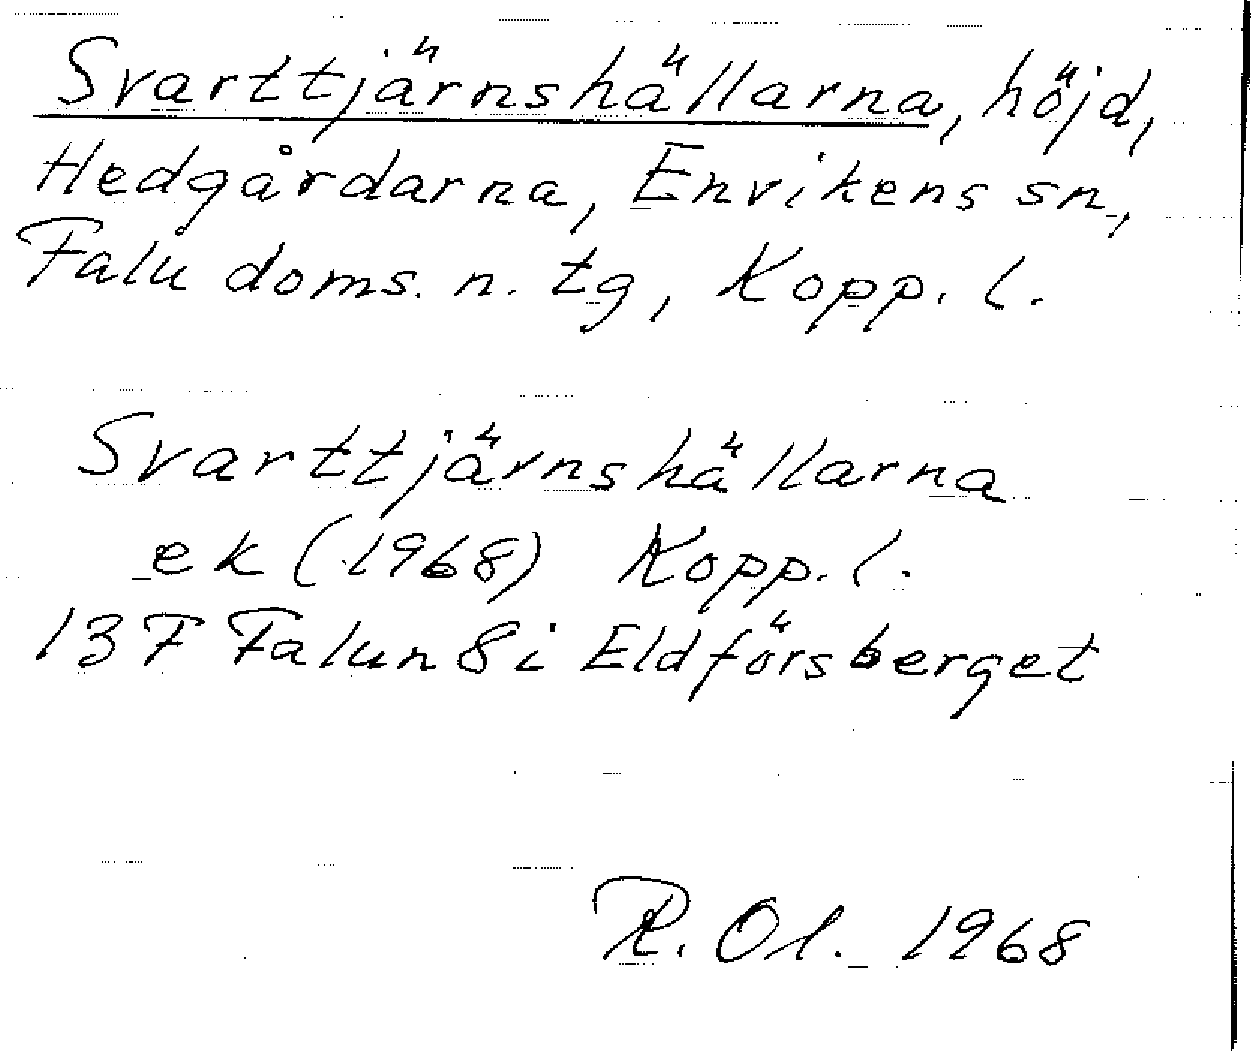 Svarttjärnshällarna, höjd,
Hedgårdarna, Envikens sn,
Falu doms. n. tg, Kopp. l.
Svarttjärnshällarna
ek (1968) Kopp. l.
13 F Falun 8 i Eldförsberget
R. Ol. 1968